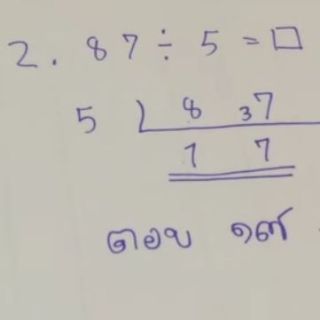 2. 87 ÷ 5 = □
5 8 37
17
ตอบ ๑๗